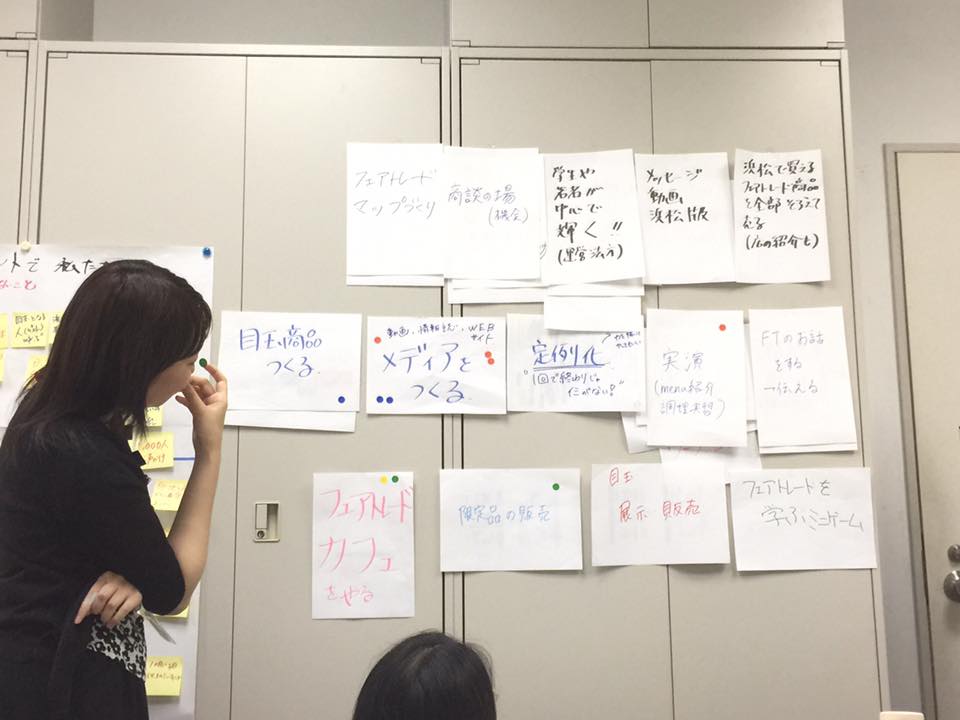 フェアトレード
マップづくり
商談の場
(機会)
学生や
若者が
中心で
輝く!!
(運営法方)
メッセージ
動画
浜松版
浜松で買える
フェアトレード商品
を全部そろえて
売る
(広の紹介も)
トで 私たち
目玉商品
つくる
動画、情報誌、WEB
サイト
メディアを
つくる
定例化
"1回で終わりじゃ
イミがない?"
実演
(menu紹介
調理実習)
FTのお話
をする
→伝える
フェアトレード
カフェ
をやる
限定品の販売
目玉
展示 販売
フェアトレードを
学ぶミニゲーム